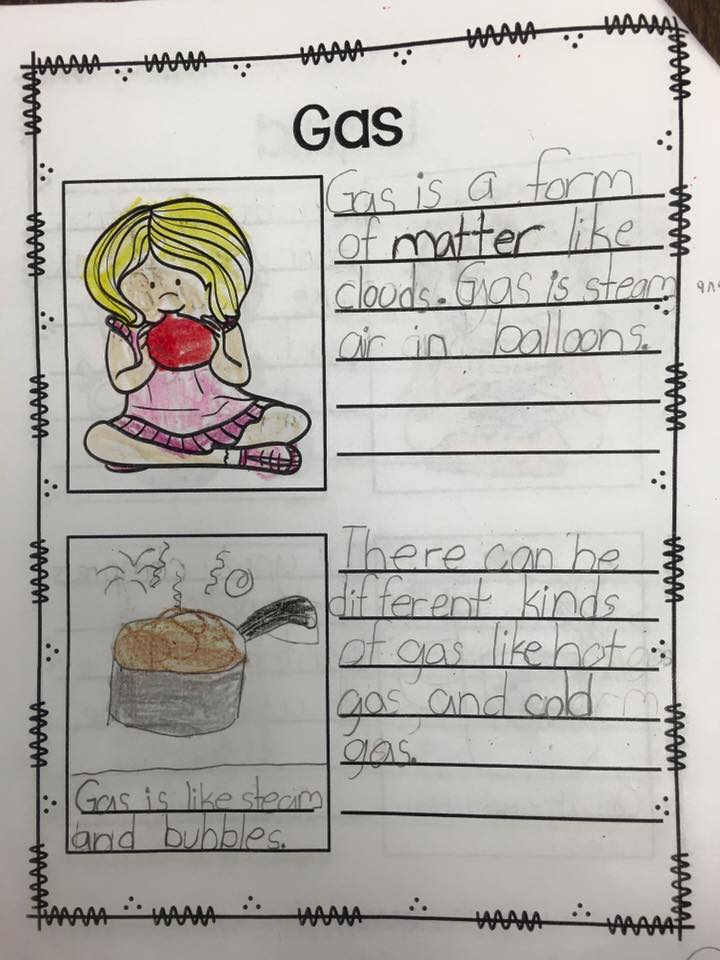 Gas
Gas is a form
of matter like
cloods. Gas is steam and
air in balloons.
There can be
different kinds
of gas like hot
gas, and cold
gas.
Gas is like steam
and bubbles.